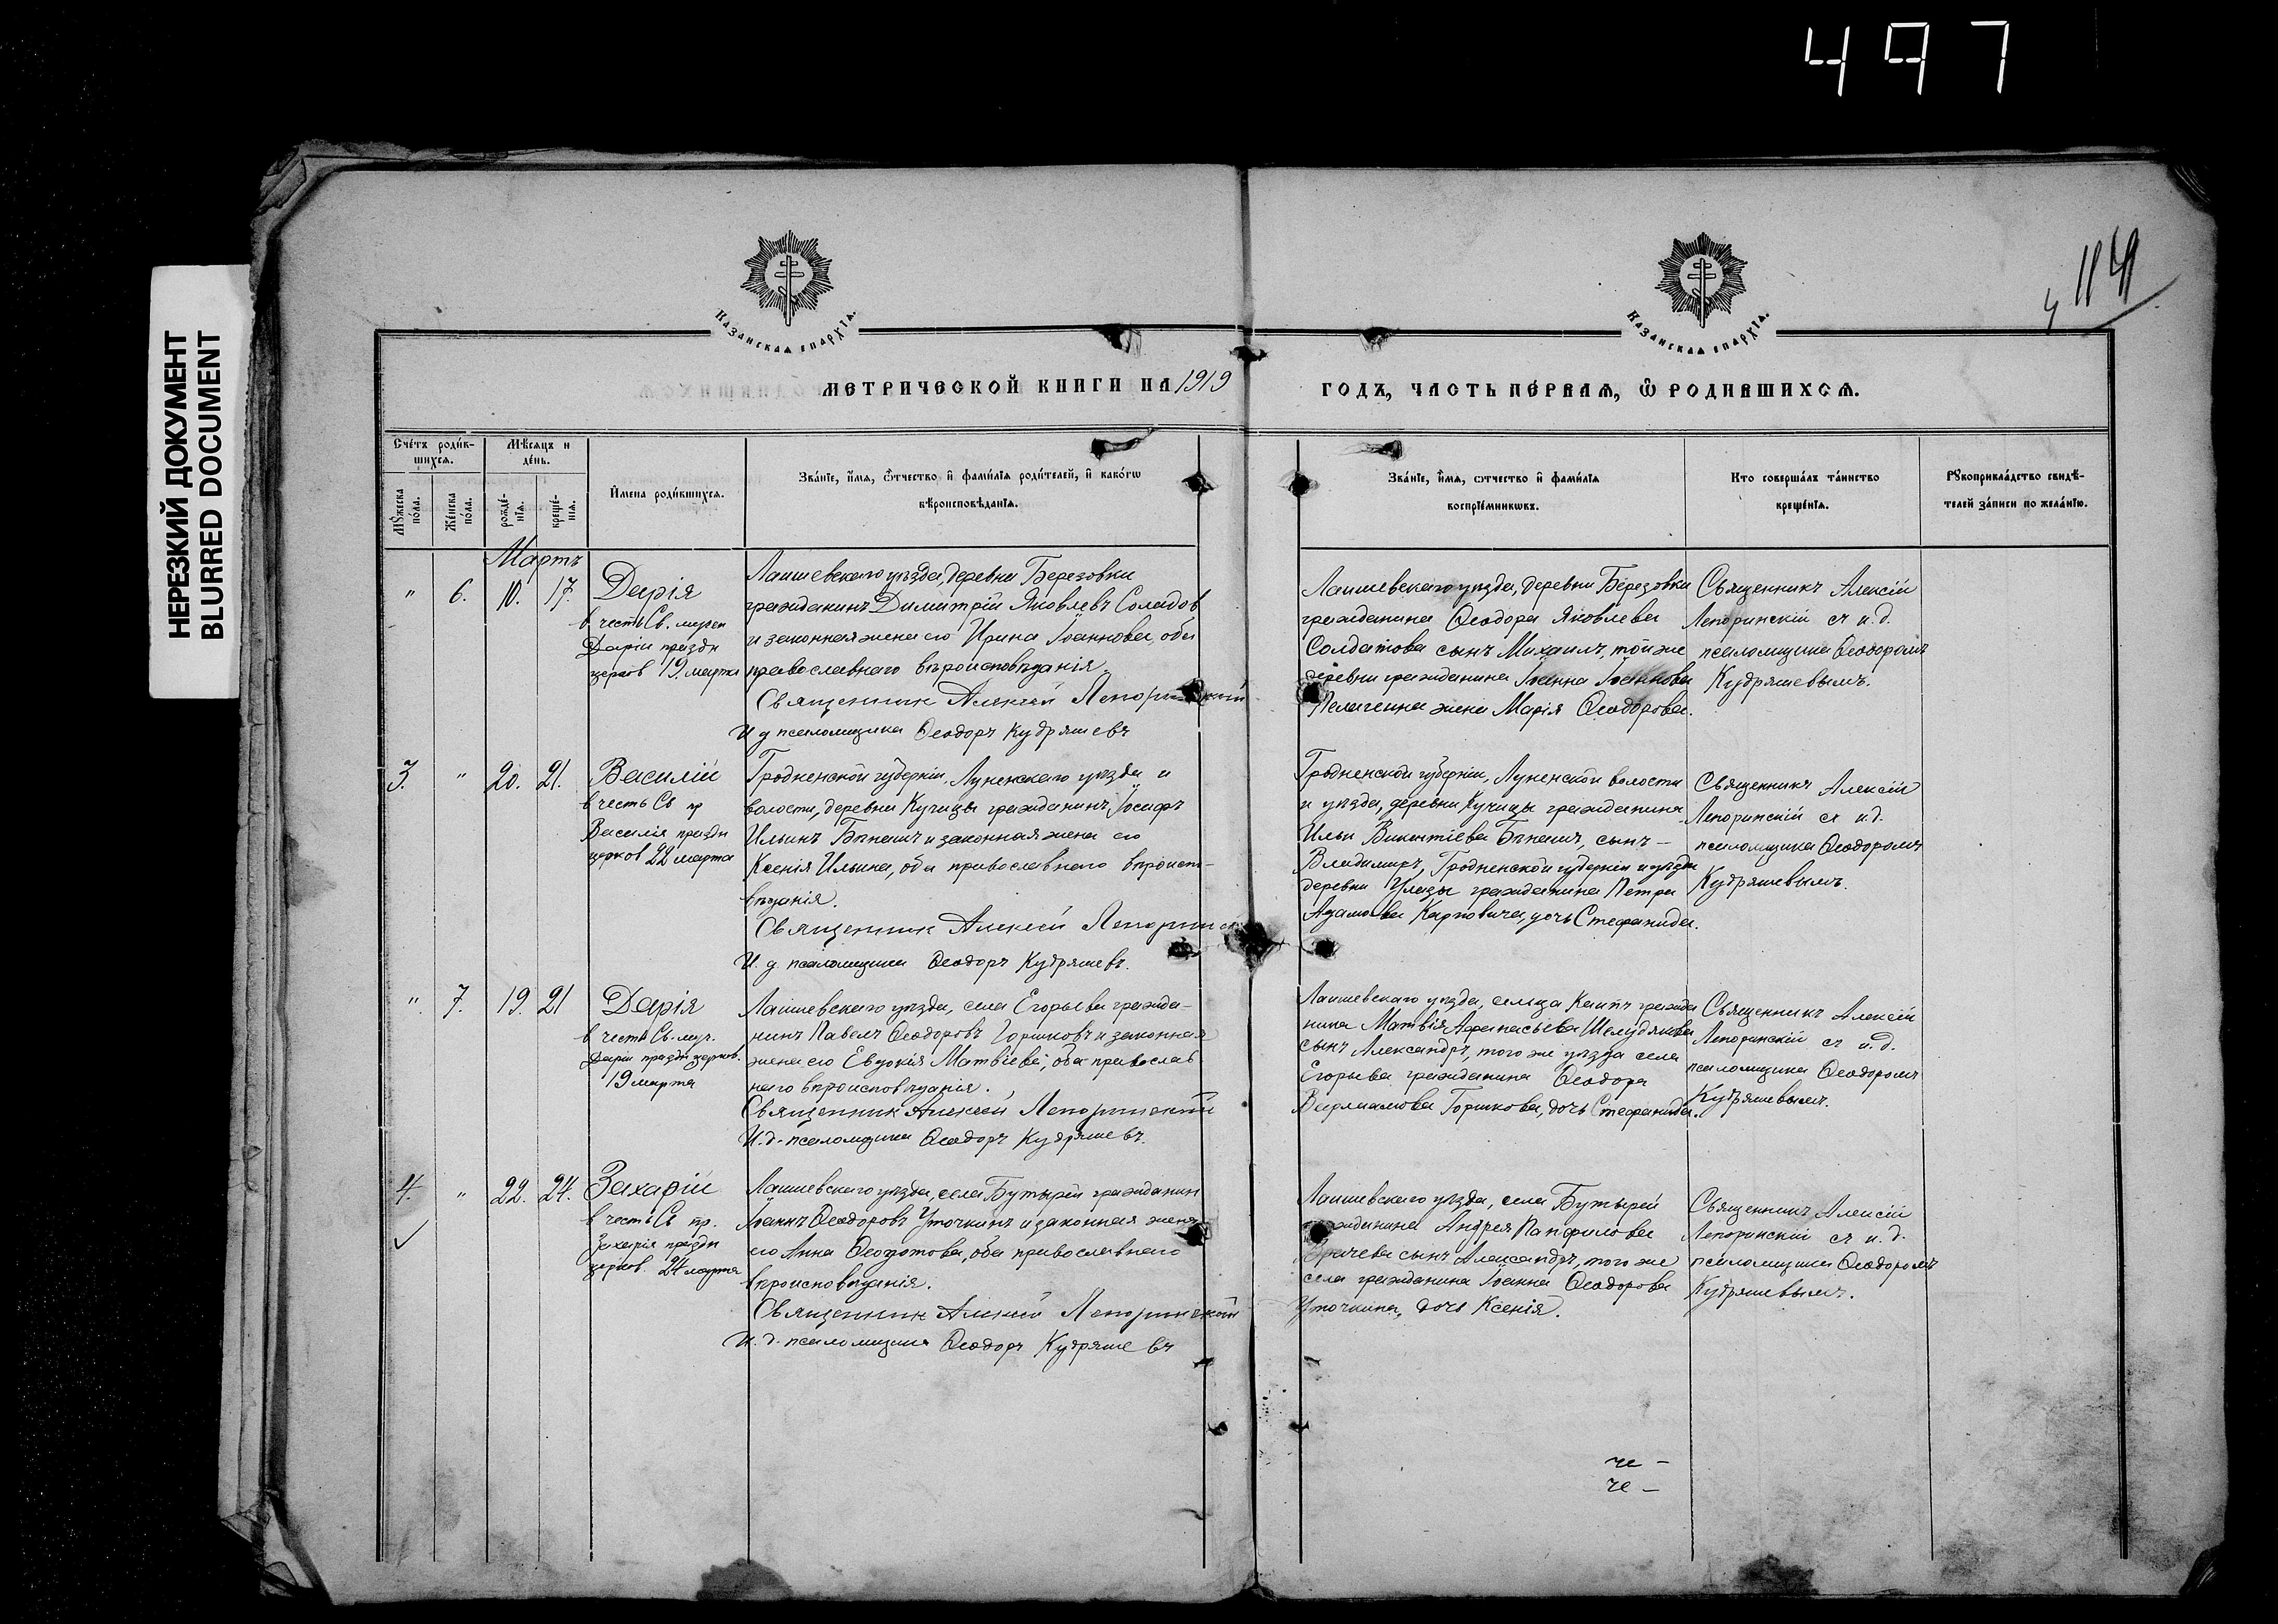 497
НЕРЕЗКИЙ ДОКУМЕНТ
BLURRED DOCUMENT
Казанская епархїѧ.
Казанская епархїѧ.
МЕТРИЧЕСКОЙ КНИГИ НА 1919
ГОДЪ, ЧАСТЬ ПЕ́РВАЯ, Ѽ РОДИВШИХСѦ.
Сче́тъ роди́в-
шихсѧ.
Мѣ́сѧцъ и
де́нь.
Мꙋ́жеска
по́ла.
Же́нска
по́ла.
рожде́-
нїѧ.
креще́-
нїѧ.
И҆мена роди́вшихсѧ.
Зва́нїе, и҆́мѧ, ѻ҆́тчество, и҆ фами́лїѧ роди́телей, и҆ како́гѡ
вѣроисповѣ́данїѧ.
Зва́нїе, и҆́мѧ, ѻ҆́тчество и҆ фами́лїѧ
воспрїе́мникѡвъ.
Кто соверша́лъ та́инство
креще́нїѧ.
Рꙋкоприкла́дство свидѣ́-
телей за́писи по жела́нїю.
Мартъ
" 6. 10. 17. Дарія
в честь Св. мучен
Даріи праздн
церков 19 марта
Лаишевскаго уѣзда, деревни Березовки
гражданинъ Димитрій Яковлевъ Солдатов
и законная жена его Ирина Іоаннова, оба
православнаго вѣроисповѣданія.
Священник Алексей Лепоринский
И д псаломщика Ѳеодоръ Кудряшевъ
Лаишевскаго уѣзда, деревни Березовки
гражданина Ѳеодора Яковлева
Солдатова сынъ Михаилъ, той же
деревни гражданина Іоанна Іоаннова
жена Марія Ѳеодорова.
Священникъ Алексій
Лепоринскій съ и.д.
псаломщика Ѳеодоромъ
Кудряшевымъ.
3. " 20. 21. Василій
в честь Св пр
Василія праздн
церков 22 марта
Гродненской губерніи, Луненскаго уѣзда и
волости, деревни Кучицы гражданинъ Іосифъ
Ильинъ и законная жена его
Ксенія Ильина, оба православнаго вѣроиспо-
вѣданія.
Священник Алексей Лепоринск
И. д. псаломщика Ѳеодоръ Кудряшевъ.
Гродненской губерніи, Луненской волости
и уѣзда, деревни Кучицы гражданина
Ильи Викентіева сынъ –
Владимиръ, Гродненской губерніи и уѣзда
деревни гражданина Петра
Адамова Карповича, дочь Стефанида.
Священникъ Алексій
Лепоринскій съ и.д.
псаломщика Ѳеодоромъ
Кудряшевымъ.
" 7. 19. 21 Дарія
в честь Св. муч.
Даріи праздн церков.
19 марта
Лаишевскаго уѣзда, села Егорьева гражда-
нинъ Павелъ Ѳеодоровъ Горшковъ и законная
жена его Евдокія Матвіева, оба православ
наго вѣроисповѣданія.
Священник Алексей Лепоринский
И.д. псаломщика Ѳеодоръ Кудряшевъ.
Лаишевскаго уѣзда, сельца гражда
нина Матвія Афанасьева Шелудякова
сынъ Александръ, того же уѣзда села
Егорьева гражданина Ѳеодора
Варлаамова Горшкова, дочь Стефанида.
Священникъ Алексій
Лепоринскій съ и.д.
псаломщика Ѳеодоромъ
Кудряшевымъ.
4. " 22. 24. Захарій
в честь Св пр.
Захарія праздн
церков. 24 марта
Лаишевскаго уѣзда, села Бутырей гражданин
Іоаннъ Ѳеодоровъ Уточкинъ и законная жена
его Анна Ѳеодотова, оба православнаго
вѣроисповѣданія.
Священник Алексей Лепоринский
И.д. псаломщика Ѳеодоръ Кудряшевъ
Лаишевскаго уѣзда, села Бутырей
гражданина Андрея Панфилова
сынъ Александръ, того же
села гражданина Іоанна Ѳеодорова
Уточкина, дочь Ксенія.
Священникъ Алексій
Лепоринскій съ и.д.
псаломщика Ѳеодоромъ
Кудряшевымъ.
че –
че –